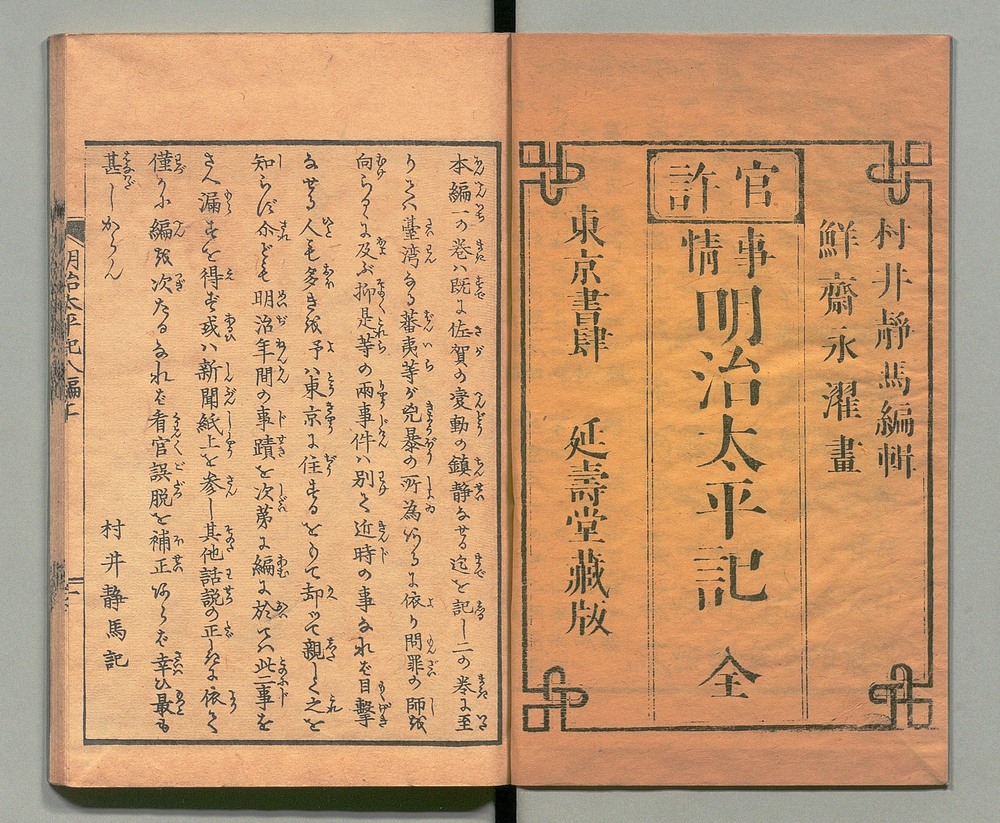 村井靜馬編輯
鮮齋永濯畫
官許
事情
明治太平記 全
東京書肆 延壽堂藏版
本編一の巻ハ既に佐賀の変動の鎮静なせる迄を記し二の巻に至
りてハ臺湾なる蕃夷等が兇暴の所為あるに依り問罪の師を
向らるゝに及ぶ抑是等の兩事件ハ別て近時の事なれば目撃
なせる人も多きを予ハ東京に住するをもて却つて親しく之を
知らず介ども明治年間の事蹟を次第に編に於てハ此二事を
さへ漏すを得ず或ハ新聞紙上を参し其他話説の正しきに依て
僅かに編を次たるなれば看官誤脱を補正あらば幸ひ最も
甚しからん
村井静馬記
明治太平記八編上